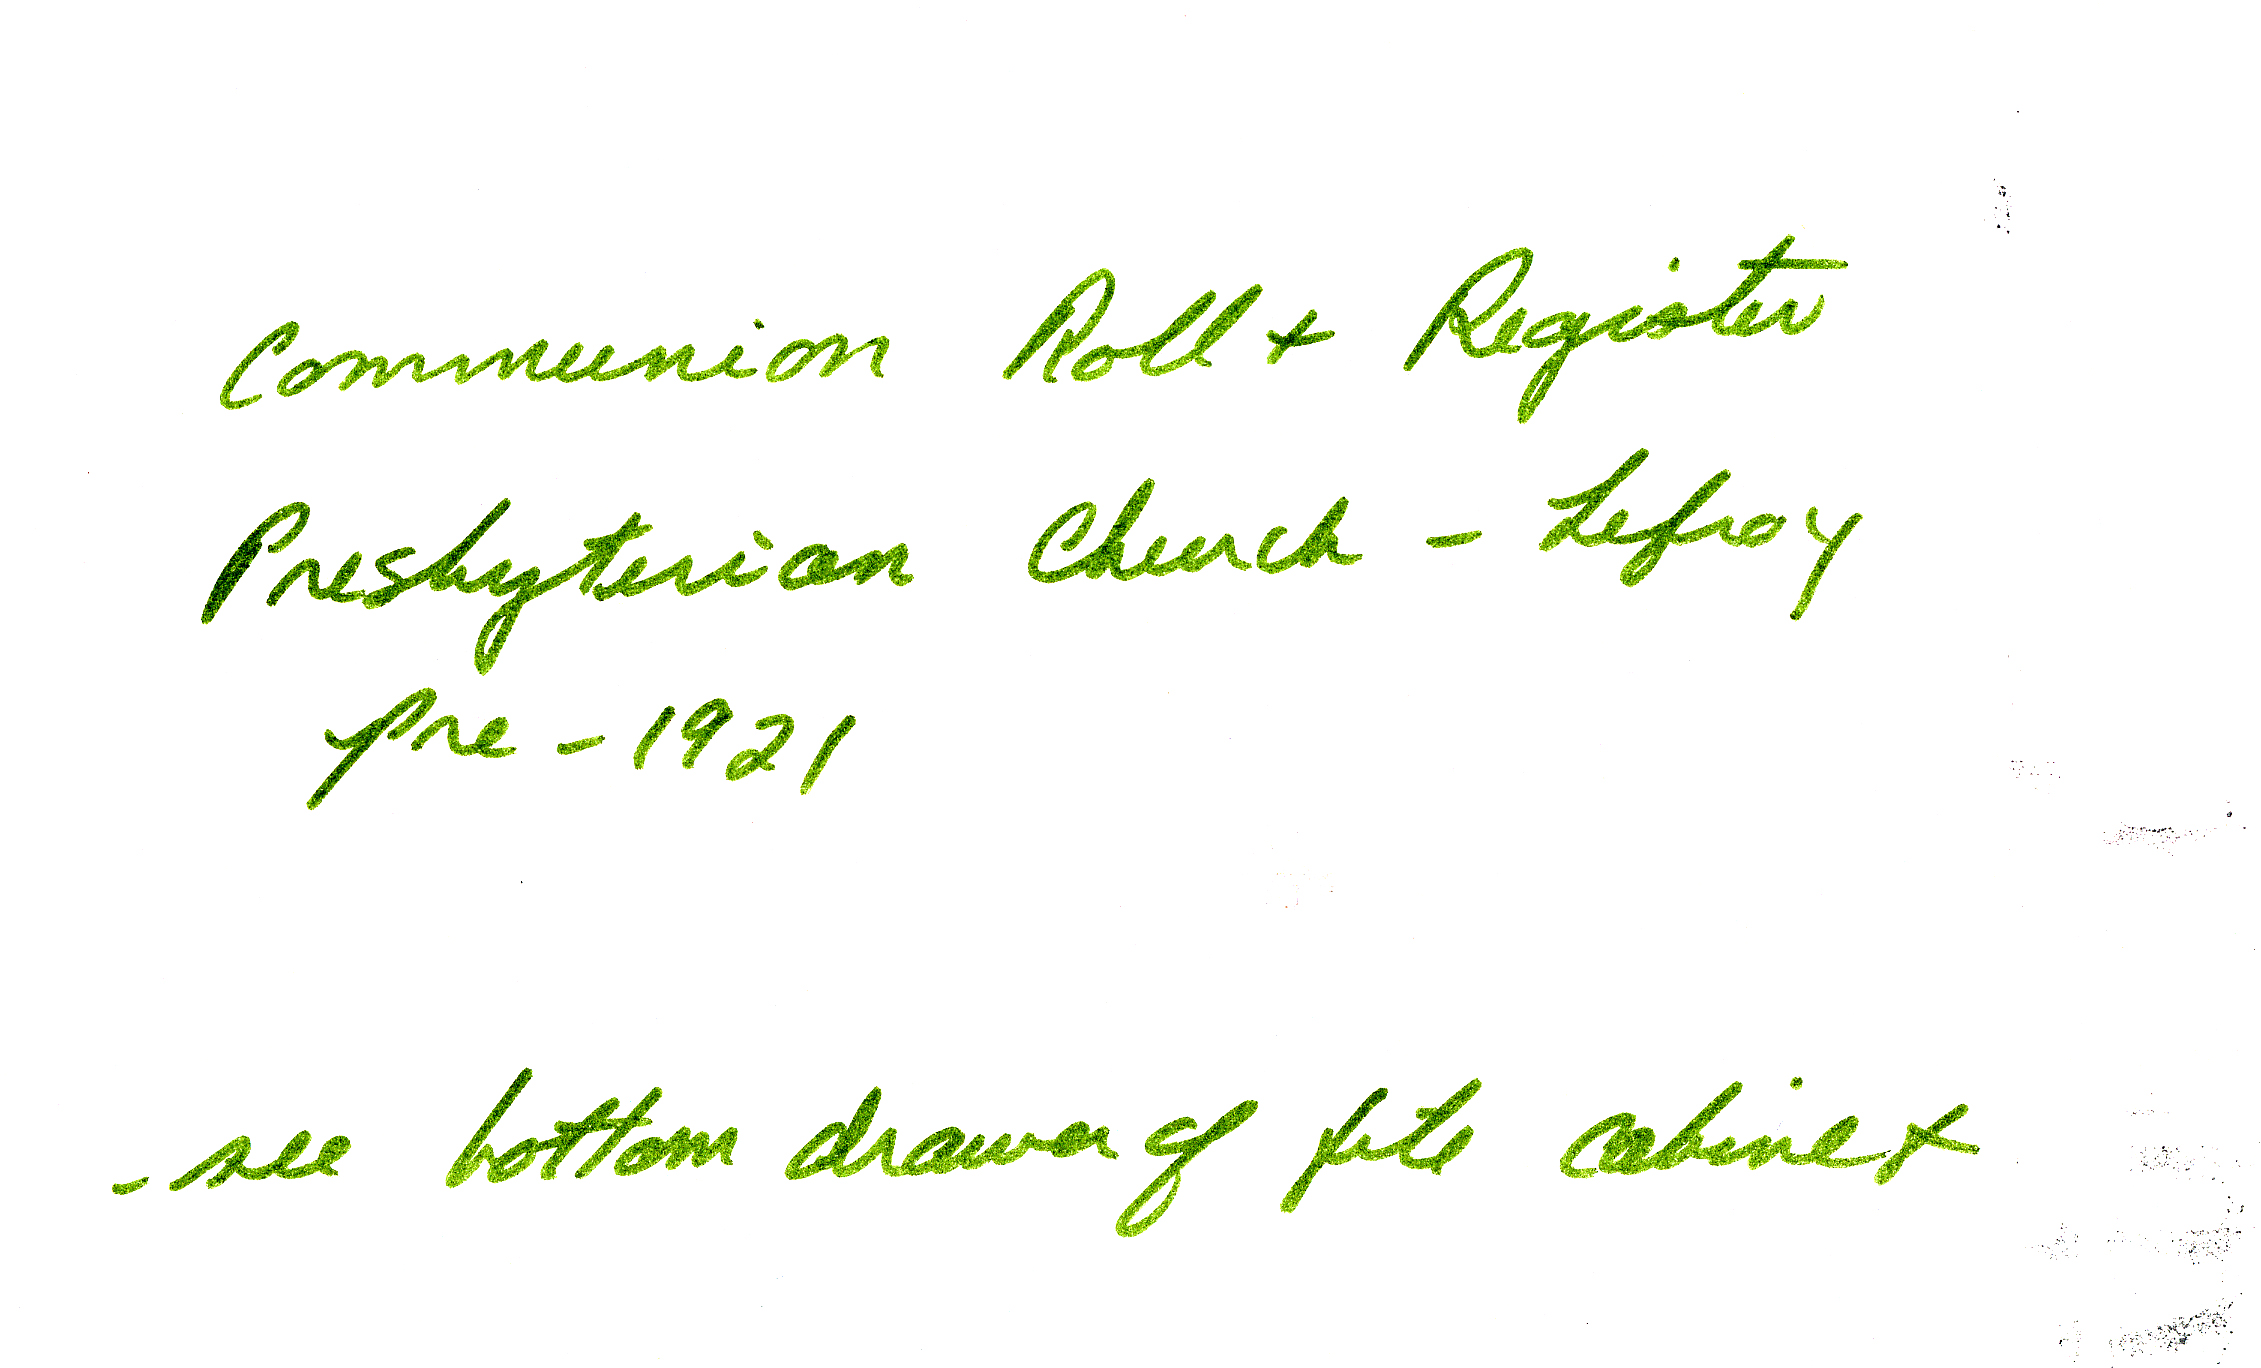 Communion Roll + Register
Presbyterian Church - Lefroy
pre - 1921
- see bottom drawer of file cabinet